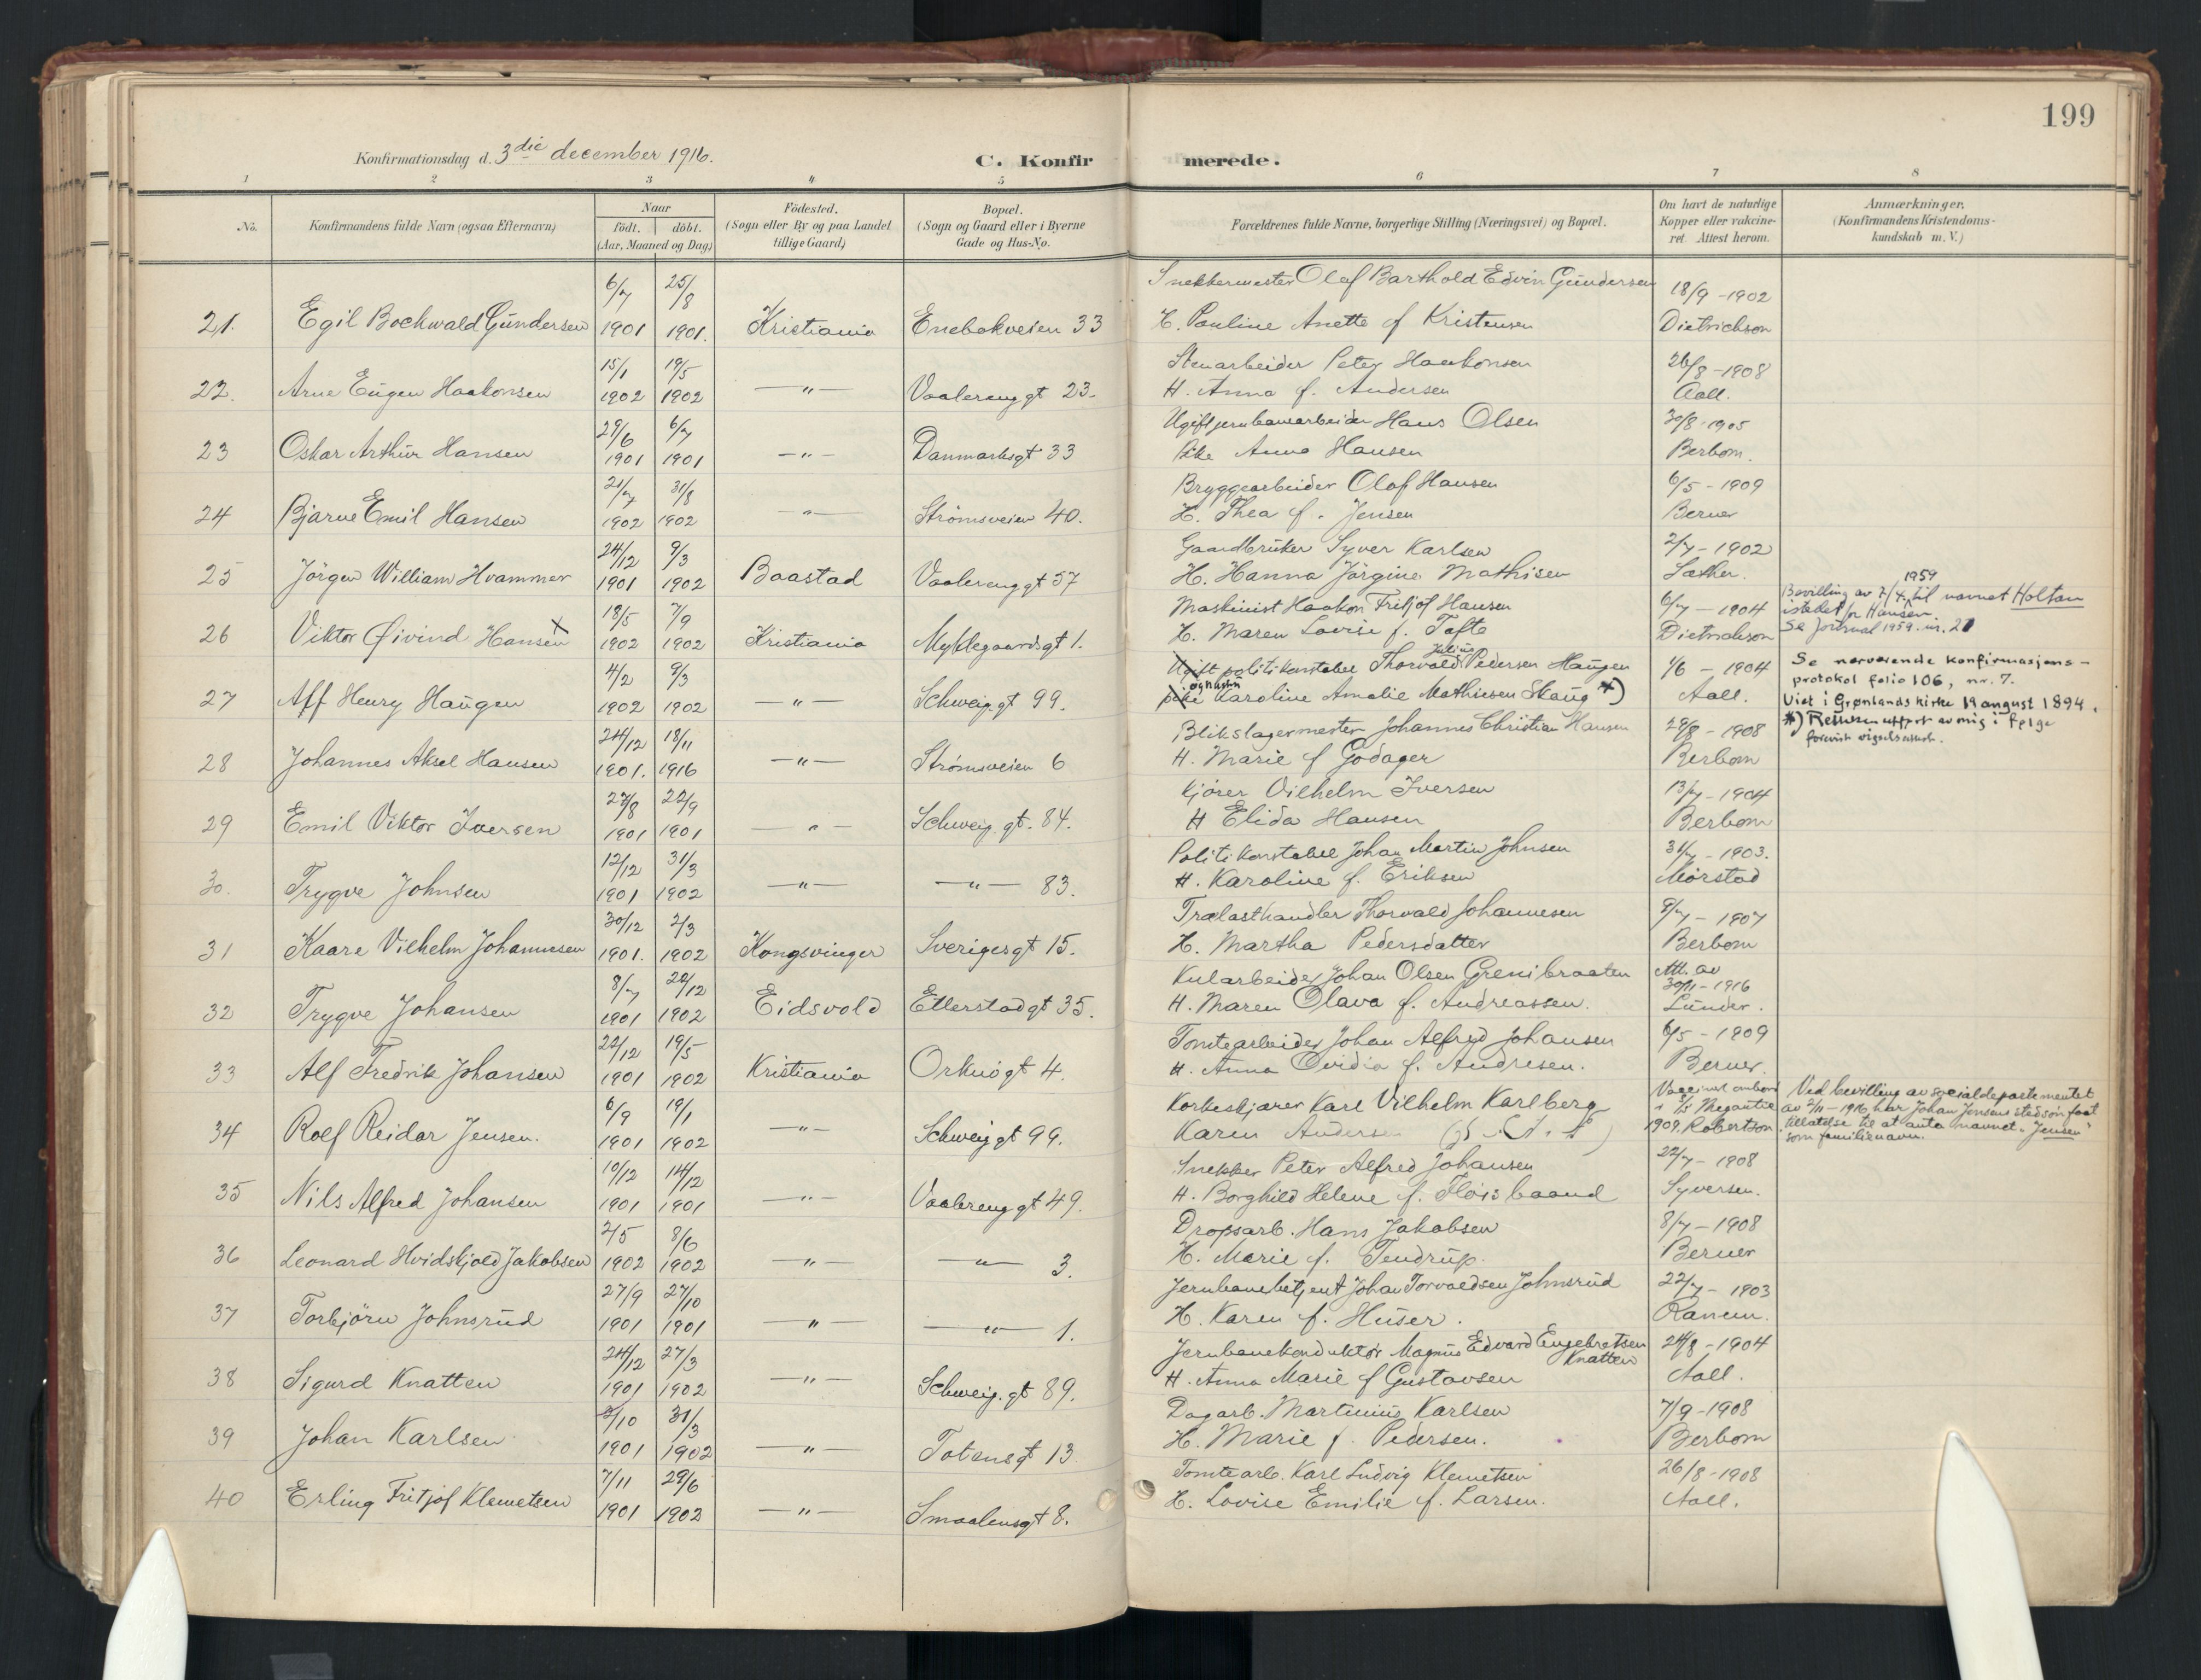 199
Konfirmationsdag d. 3die december 1916.
C. Konfirmerede.
1 2 3 4 5 6 7 8
No.
Konfirmandens fulde Navn (ogsaa Efternavn)
Naar
födt. döbt.
(Aar, Maaned og Dag)
Födested.
(Sogn eller By og paa Landet
tillige Gaard)
Bopæl.
(Sogn og Gaard eller i Byerne
Gade og Hus-No.
Forældrenes fulde Navne, borgerlige Stilling (Næringsvei) og Bopæl.
Om havt de naturlige
Kopper eller vakcine-
ret Attest herom.
Anmærkninger.
(Konfirmandens Kristendoms-
kundskab m. V.)
6/7 25/8 Snekkermester Olaf Barthold Edvin Gundersen 18/9 - 1902
21. Egil Bockwald Gundersen 1901 1901. Kristiania Enebakveien 33 H. Pauline Anette f Kristensen Dietrichson
15/1 19/5 Stenarbeider Peter Haakonsen 26/8 - 1908
22. Arne Eugen Haakonsen 1902 1902 — " — Vaalerenggt 23. H. Anna f. Andersen Aall.
29/6 6/7 Ugift jernbanearbeider Hans Olsen 30/8 - 1905
23 Oskar Arthur Hansen 1901 1901 — " — Danmarksgt 33 Pike Anna Hansen Berbom.
21/7 31/8 Bryggearbeider Olaf Hansen 6/5 - 1909
24 Bjarne Emil Hansen 1902 1902 — " — Strömsveien 40. H. Thea f. Jensen Berner
24/12 9/3 Gaardbruker Syver Karlsen 2/7 - 1902
25 Jörgen William Hvammer 1901 1902 Baastad Vaalerenggt 57 H. Hanna Jörgine Mathisen Sæther.
18/5 7/9 Maskinist Haakon Fritjof Hansen 6/7 - 1904
26 Viktor Øivind Hansen x 1902 1902 Kristiania Myklegaardsgt 1. H. Maren Lovise f. Tofte Dietrichson
Bevilling av 7/4 1959 til navnet Holtan
istedet for Hansen
Se Journal 1959. nr. 21
4/2 9/3 Ugift politikonstabel Thorvald Julius Pedersen Haugen 1/6 - 1904
27 Aff Henry Haugen 1902 1902 — " — Schweig. gt 99. Pike og hustru Karoline Amalie Mathiesen Skaug *) Aall.
Se nærværende konfirmasjons-
protokol folio 106, nr. 7.
Viet i Grønlands kirke 19 august 1894.
*) Rettelsen utført av mig i følge
forevist vigselsattest.
24/12 18/11 Blikslagermester Johannes Christian Hansen 29/8 - 1908
28 Johannes Aksel Hansen 1901. 1916 — " — Strömsveien 6 H. Marie f Godager Berbom
27/8 22/9 Kjører Vilhelm Iversen 13/7 - 1904
29 Emil Viktor Iversen 1901 1901 — " — Schweig. gt. 84. H Elida Hansen Berbom
12/12 31/3 Politikonstabel Johan Martin Johnsen 31/7 - 1903.
30. Trygve Johnsen 1901 1902 — " — — " — 83. H. Karoline f. Eriksen Mörstad
30/12 2/3 Trælasthandler Thorvald Johannesen 9/7 - 1907
31 Kaare Vilhelm Johannesen 1901. 1902 Kongsvinger Sverigesgt 15. H. Martha Pedersdatter Berbom
8/7 22/12 Kularbeider Johan Olsen Grenibraaten Att. av 30/11 - 1916
32 Trygve Johansen 1901 1902 Eidsvold Etterstadgt 35. H. Maren Olava f. Andreassen. Lunder.
22/12 19/5 Tomtearbeider Johan Alfred Johansen 6/5 - 1909
33 Alf Fredrik Johansen 1901 1902 Kristiania Orknögt 4. H. Anna Ovidia f. Andresen. Berner.
6/9 19/1 Korkeskjærer Karl Vilhelm Karlberg
34 Rolf Reidar Jensen. 1901 1902 — " — Schweig gt 99. Karen Anders 1909. Robertson
Ved bevilling av socialdepartementet
av 2/11 - 1916 har Johan Jensens stedsøn faat
tillatelse til at anta navnet "Jensen"
som familienavn.
10/12 14/12 Snekker Peter Alfred Johansen 22/7 - 1908
35 Nils Alfred Johansen 1901 1901 — " — Vaalerenggt 49. H. Borghild Helene f. Floisbaand Syversen.
2/5 8/6 Dropsarb. Hans Jakobsen 8/7 - 1908
36 Leonard Hvidskjold Jakobsen 1902 1902 — " — — " — 3. H. Marie f. Tendrup. Berner
27/9 27/10 Jernbanebetjent Johan Torvaldsen Johnsrud 22/7 - 1903
37 Torbjörn Johnsrud 1901 1901 — " — — " — 1. H. Karen f. Huser. Ranum.
24/12 27/3 Jernbanekonduktör Magnus Edvard Engebretsen Knatten 24/8 - 1904
38 Sigurd Knatten 1901 1902 — " — Schweig. gt 89. H. Anna Marie f Gustavsen Aall.
3/10 31/3 Dagarb. Martinius Karlsen 7/9 - 1908
39 Johan Karlsen 1901 1902 — " — Totensgt 13 H. Marie f. Pedersen. Berbom
7/11 29/6 Tomtearb. Karl Ludvig Klemetsen 26/8 - 1908
40 Erling Fritjof Klemetsen 1901 1902 — " — Smaalensgt 8. H. Lovise Emilie f. Larsen. Aall.